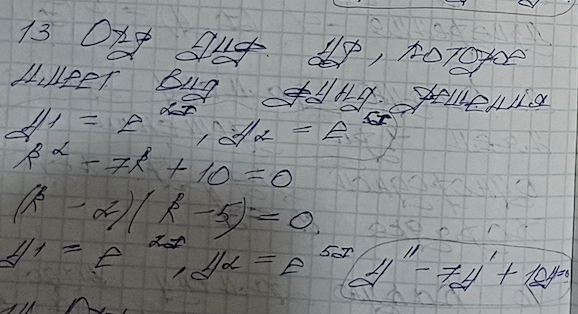 13 Опр диф. ур, которое
имеет вид фунд. решения
y1 = e^2x, y2 = e^5x
k^2 - 7k + 10 = 0
(k - 2)(k - 5) = 0.
y1 = e^2x, y2 = e^5x y'' - 7y' + 10y=0